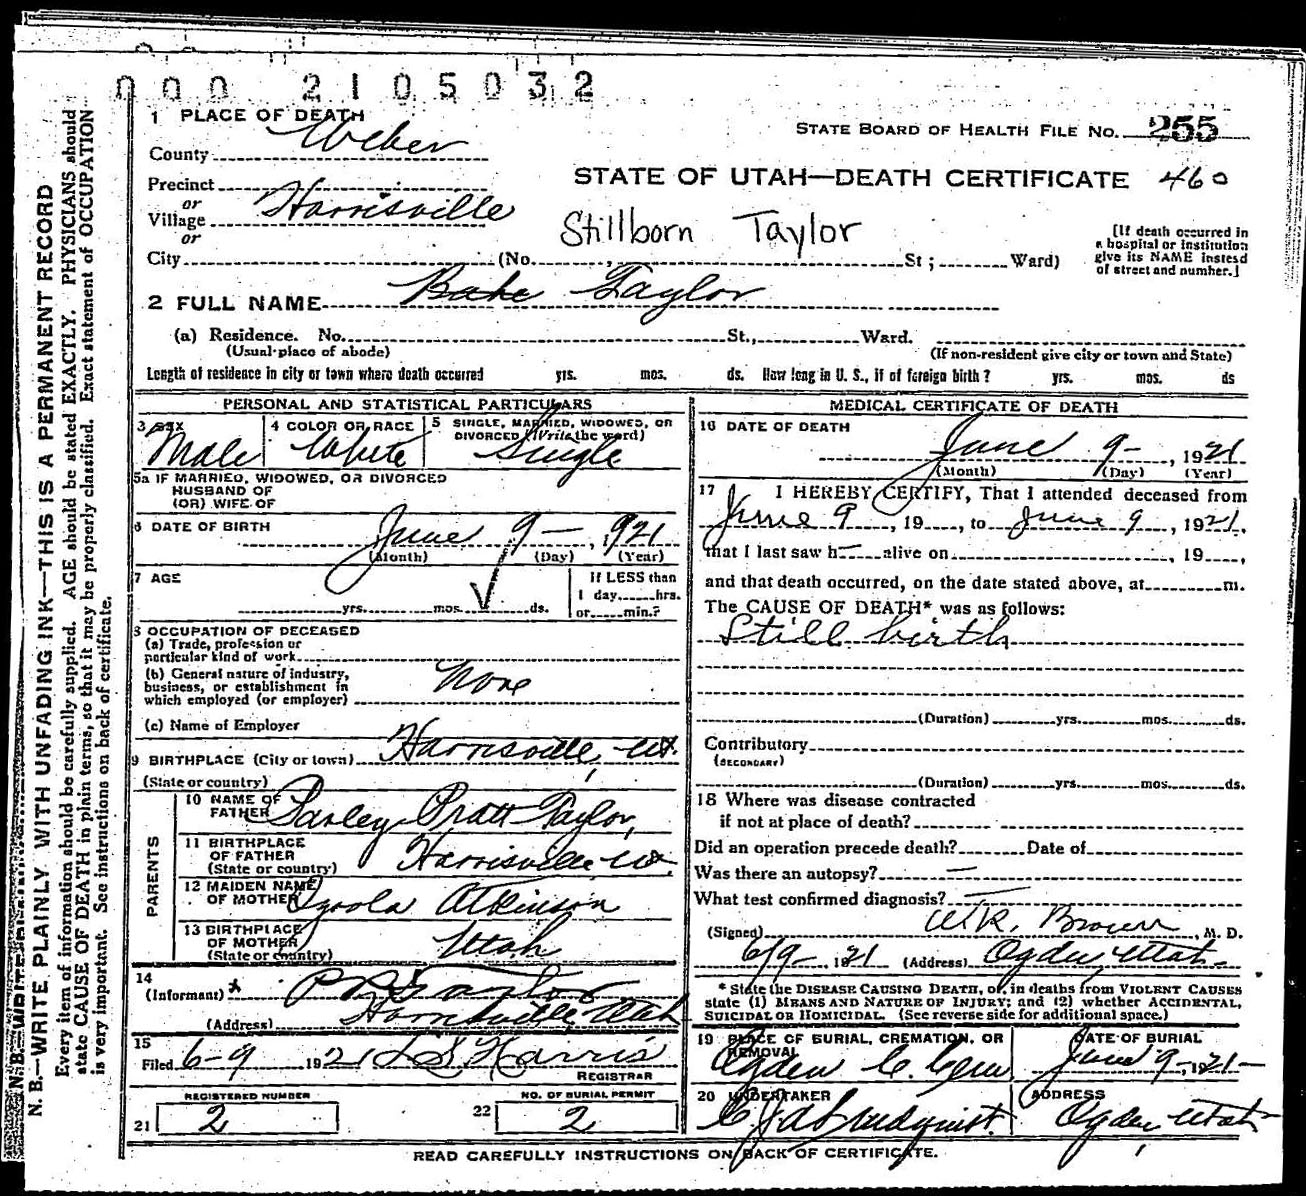 0 0 0 2 1 0 5 0 3 2
1 PLACE OF DEATH
STATE BOARD OF HEALTH FILE NO. 255
County Weber
STATE OF UTAH—DEATH CERTIFICATE 460
Precinct
or
Village Harrisville
or
Stillborn Taylor
[If death occurred in
a hospital or institution
give its NAME instead
of street and number.]
City (No. , St ; Ward)
2 FULL NAME Babe Taylor
(a) Residence. No. St., Ward.
(Usual place of abode) (If non-resident give city or town and State)
Length of residence in city or town where death occurred yrs. mos. ds. How long in U. S., if of foreign birth? yrs. mos. ds
PERSONAL AND STATISTICAL PARTICULARS
3 SEX Male
4 COLOR OR RACE White
5 SINGLE, MARRIED, WIDOWED, OR
DIVORCED (Write the word) Single
5a IF MARRIED, WIDOWED, OR DIVORCED
HUSBAND OF
(OR) WIFE OF
6 DATE OF BIRTH June 9 — , 1921
(Month) (Day) (Year)
7 AGE
yrs. mos. ds.
If LESS than
1 day, hrs.
or min.?
8 OCCUPATION OF DECEASED
(a) Trade, profession or
particular kind of work
(b) General nature of industry,
business, or establishment in
which employed (or employer) None
(c) Name of Employer
9 BIRTHPLACE (City or town) Harrisville, Ut.
(State or country)
PARENTS
10 NAME OF
FATHER Parley Pratt Taylor,
11 BIRTHPLACE
OF FATHER
(State or country) Harrisville Ut.
12 MAIDEN NAME
OF MOTHER Atkinson
13 BIRTHPLACE
OF MOTHER
(State or country) Utah
14
(Informant) P P Taylor
(Address) Harrisville Utah
15
Filed 6-9 1921 L S Harris
REGISTRAR
REGISTERED NUMBER
21 2
NO. OF BURIAL PERMIT
22 2
MEDICAL CERTIFICATE OF DEATH
16 DATE OF DEATH
June 9 - , 1921
(Month) (Day) (Year)
17 I HEREBY CERTIFY, That I attended deceased from
June 9 , 19 , to June 9 , 1921,
that I last saw h— alive on , 19 ,
and that death occurred, on the date stated above, at m.
The CAUSE OF DEATH* was as follows:
Still birth
(Duration) yrs. mos. ds.
Contributory
(SECONDARY)
(Duration) yrs. mos. ds.
18 Where was disease contracted
if not at place of death?
Did an operation precede death? Date of
Was there an autopsy? —
What test confirmed diagnosis? —
(Signed) W.R. Brown , M. D.
6/9 - , 1921 (Address) Ogden Utah -
* State the DISEASE CAUSING DEATH, or, in deaths from VIOLENT CAUSES
state (1) MEANS AND NATURE OF INJURY; and (2) whether ACCIDENTAL,
SUICIDAL OR HOMICIDAL. (See reverse side for additional space.)
19 PLACE OF BURIAL, CREMATION, OR
REMOVAL
Ogden C. Cem
DATE OF BURIAL
June 9 -, 1921 -
20 UNDERTAKER
Lindquist.
ADDRESS
Ogden, Utah
READ CAREFULLY INSTRUCTIONS ON BACK OF CERTIFICATE.
N. B.—WRITE PLAINLY WITH UNFADING INK—THIS IS A PERMANENT RECORD
Every item of information should be carefully supplied. AGE should be stated EXACTLY. PHYSICIANS should
state CAUSE OF DEATH in plain terms, so that it may be properly classified. Exact statement of OCCUPATION
is very important. See instructions on back of certificate.